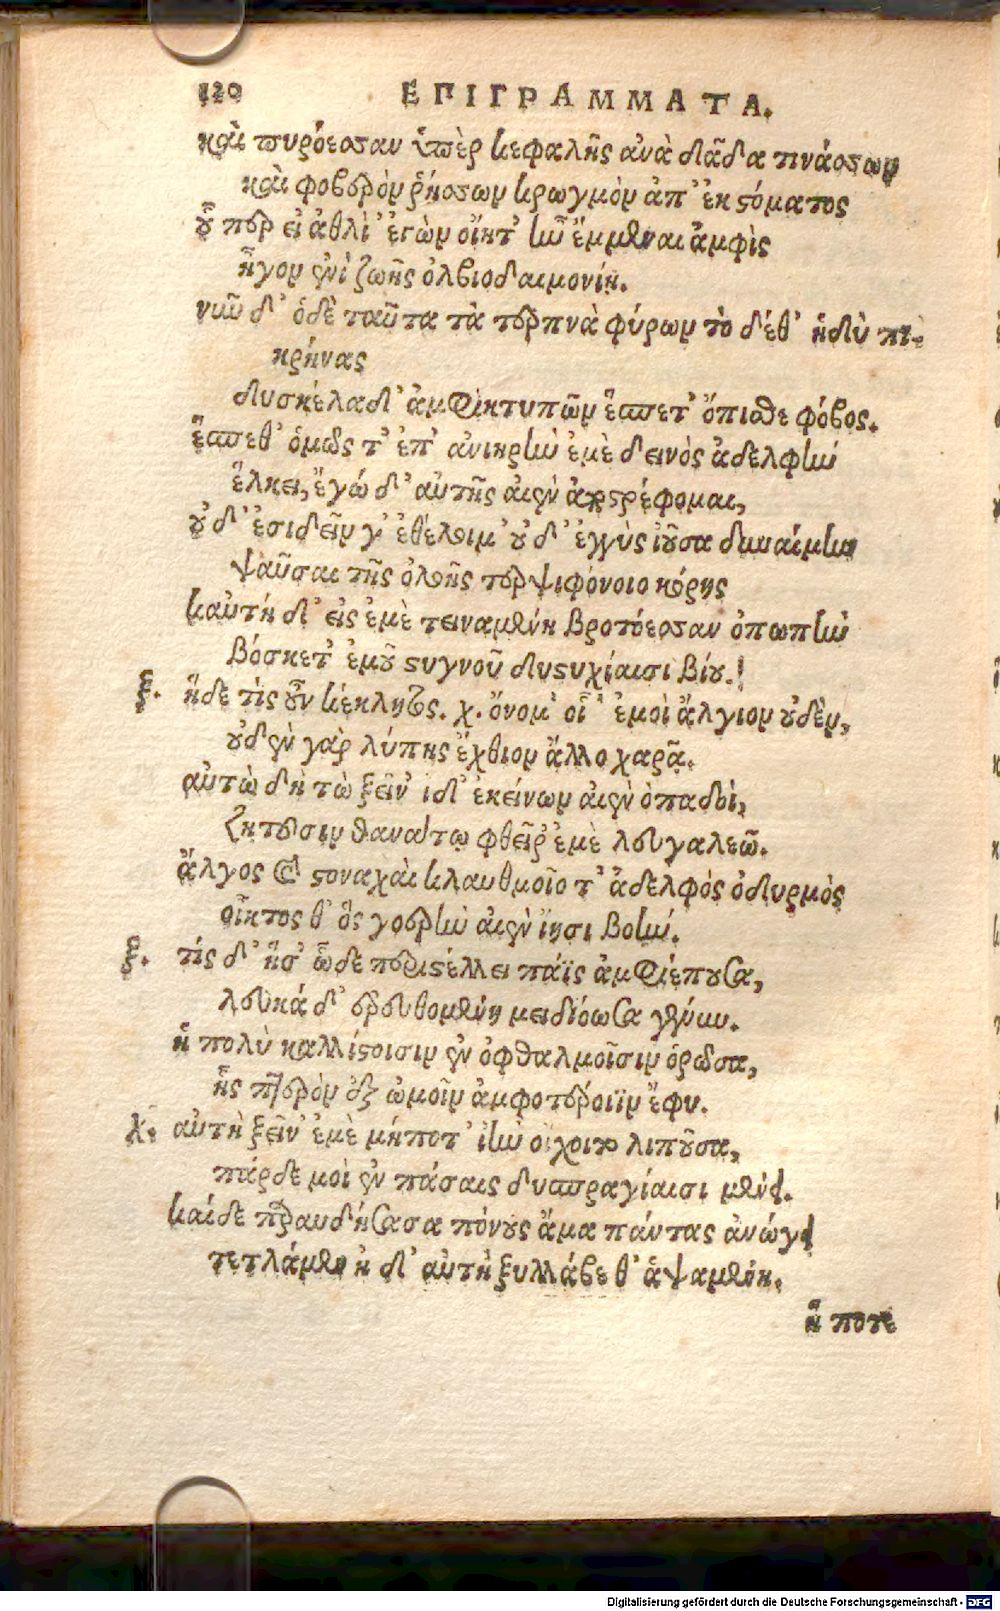 120 ΕΠΙΓΡΑΜΜΑΤΑ.
καὶ πυρόεσσαν ὑπὲρ κεφαλῆς ἀνὰ δᾷδα τινάσσων
καὶ φοβερὸν ῥήσσων κρωγμὸν ἀπ' ἐκ στόματος
οὗ περ εἰ ἀθλὶ' ἐγὼν οἵητ' ἦν ἔμμεναι ἀμφὶς
ἦγον ἐνὶ ζωῆς ὀλβιοδαιμονίῃ.
νῦν δ' ὁδὲ ταῦτα τὰ τερπνὰ φύρων τὸ δέθ' ἡδὺ πι-
κρήνας
δυσκέλαδ' ἀμφικτυπῶν ἕσπετ' ὄπισθε φόβος.
ἕσπεθ' ὁμῶς τ' ἐπ' ἀνιηρὴν ἐμὲ δεινὸς ἀδελφὴν
ἕλκει, ἔγώ δ' αὐτῆς αἰὲν ἀποστρέφομαι,
οὐδ' ἐσιδεῖν γ' ἐθέλοιμ' οὐδ' ἐγγὺς ἰοῦσα δυναίμην
ψαῦσαι τῆς ὀλοῆς τερψιφόνοιο κόρης
καὐτή δ' εἰς ἐμὲ τειναμένη βροτόεσσαν ὀπωπὴν
βόσκετ' ἐμοῦ στυγνοῦ δυστυχίαισι βίου.!
ξ. ἥδε τὶς οὖν κέκληται. χ. ὄνομ' οἷ' ἐμοὶ ἄλγιον οὐδὲν,
οὐδὲν γὰρ λύπης ἔχθιον ἄλλο χαρᾷ.
αὐτὼ δὴ τὼ ξεῖν' ἰδ' ἐκείνων αἰὲν ὀπαδοὶ,
ζητεῦσιν θανάτῳ φθεῖρ' ἐμὲ λευγαλεῷ.
ἄλγος καὶ στοναχαὶ κλαυθμοῖο τ' ἀδελφὸς ὀδυρμὸς
οἶκτος θ' ὃς γοερὴν αἰὲν ἵησι βοὴν.
ξ. τίς δ' ἥδ' ὧδε περιστέλλει πάϊς ἀμφιέπουσα,
λευκά δ' ἐρευθομένη μειδιόωσα γένυν.
ἡ πολὺ καλλίστοισιν ἐν ὀφθαλμοῖσιν ὁρῶσα,
ἧς πτερὸν ἐξ ὠμοῖν ἀμφοτέροιϊν ἔφυ.
χ. αὐτὴ ξεῖν' ἐμὲ μήποτ' ἰὴν οἴχοιτο λιποῦσα,
πάρδε μοὶ ἐν πάσαις δυσπραγίαισι μένει.
καίδε παραυδήσασα πόνους ἅμα πάντας ἀνώγει
τετλάμεν ἠ δ' αὐτὴ ξυλλάβε θ' ἁψαμένη.
ἥ ποτε
Digitalisierung gefördert durch die Deutsche Forschungsgemeinschaft - DFG